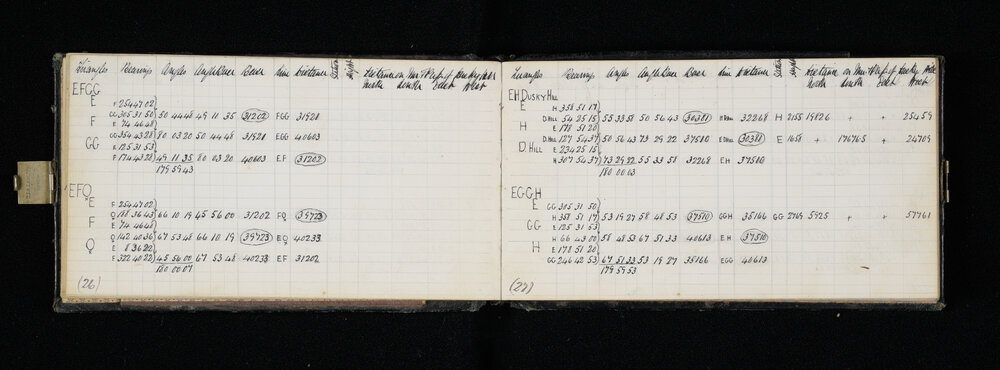 Triangles Bearings Angles Angle Base Line Distance Station Height Distance on Mer & Perp of Dusky Hill
North South East West
EFGG
E F 254 47 02
GG 305 31 50 50 44 48 49 11 35 31202 FGG 31921
F E 74 46 48
GG 354 43 28 80 03 20 50 44 48 31921 EGG 40603
GG E 125 31 53
F 174 43 28 49 11 35 80 03 20 40603 E.F 31202
179 59 43
EFQ
E F 254 47 02
Q 188 36 43 66 10 19 45 56 00 31202 FQ 39723
F E 74 46 48
Q 142 40 36 67 53 48 66 10 19 39723 EQ 40233
Q E 8 36 22
F 322 40 22 45 56 00 67 53 48 40233 E.F 31202
180 00 07
(26)
Triangles Bearing Angles Angle Base Line Distance Station Height Distance on Mer & Perp of Dusky Hill
North South East West
EH DUSKY HILL
E H 358 51 17
D.HILL 54 25 15 55 33 58 50 56 43 30381 H 32268 H 2155 19826 + + 25459
H E 178 51 20
D.HILL 127 54 37 50 56 43 73 29 22 37510 E DHILL 30381 E 1658 + 17676.5 + 24709
D.HILL E 234 25 15
H 307 54 37 73 29 22 55 33 58 32268 EH 37510
180 00 03
EGGH
E GG 305 31 50
H 358 51 17 53 19 27 58 48 53 37510 GGH 35166 GG 2769 5925 + + 57761
GG E 125 31 53
H 66 43 00 58 48 53 67 51 33 40613 EH 37510
H E 178 51 20
GG 246 42 53 67 51 33 53 19 27 35166 EGG 40613
179 59 53
(27)